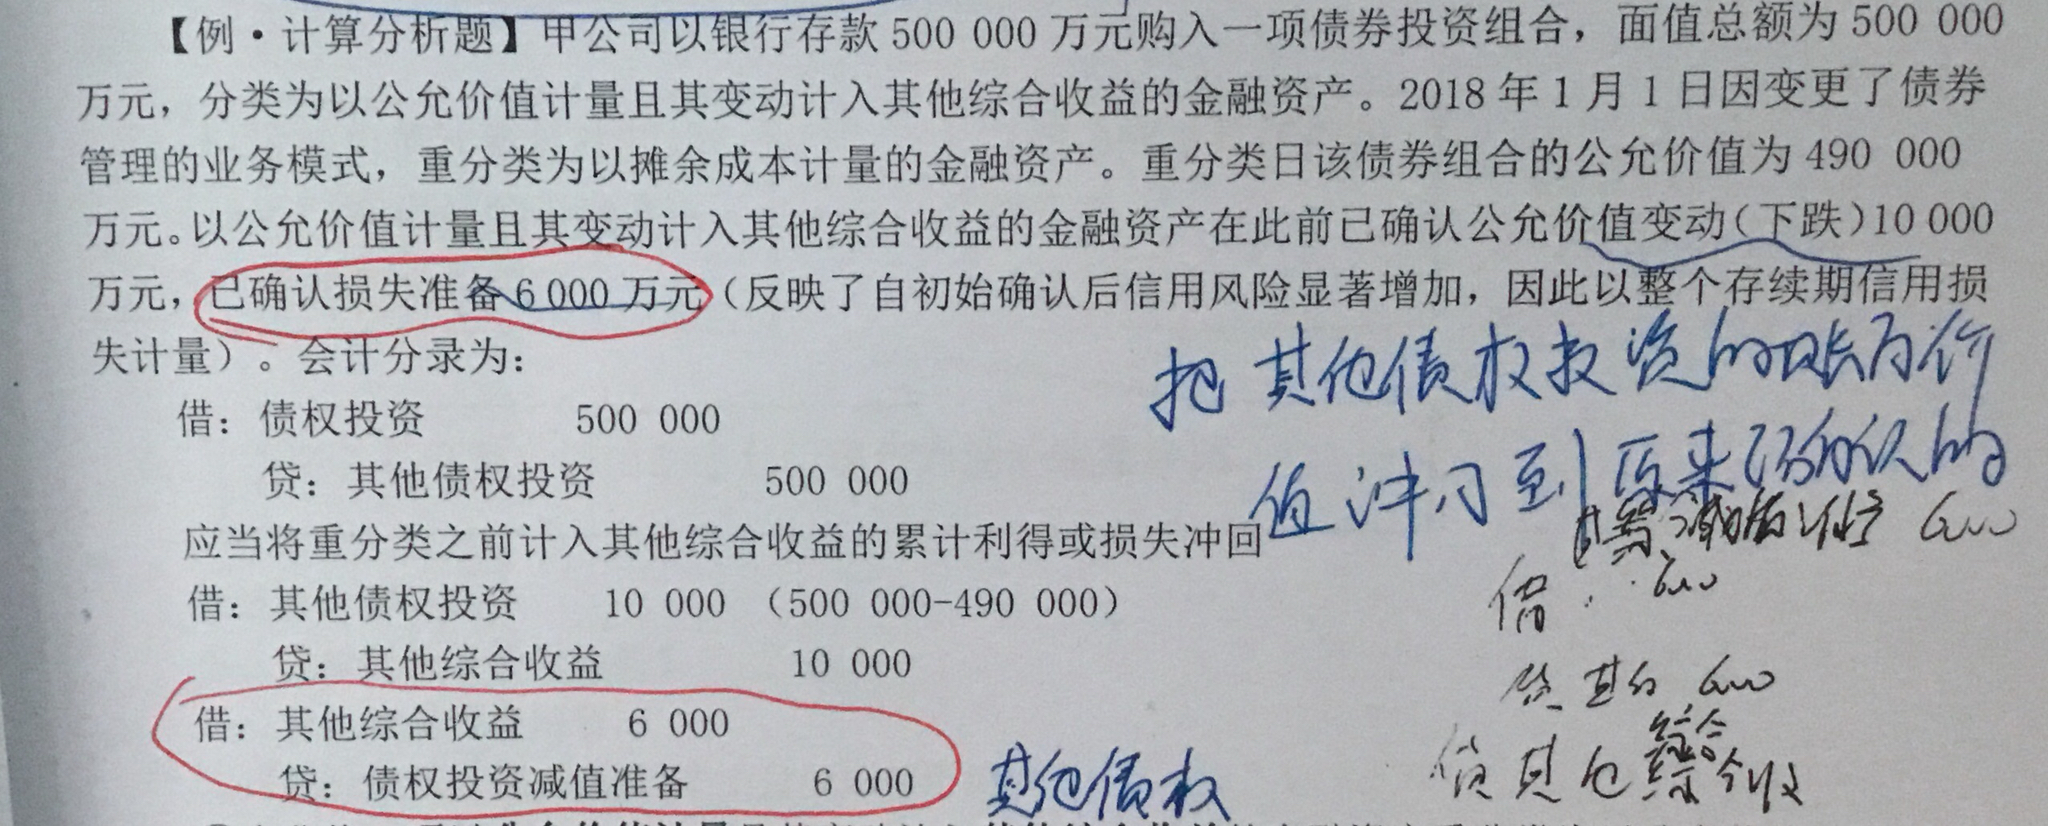 【例·计算分析题】甲公司以银行存款 500 000 万元购入一项债券投资组合，面值总额为 500 000
万元，分类为以公允价值计量且其变动计入其他综合收益的金融资产。2018 年 1 月 1 日因变更了债券
管理的业务模式，重分类为以摊余成本计量的金融资产。重分类日该债券组合的公允价值为 490 000
万元。以公允价值计量且其变动计入其他综合收益的金融资产在此前已确认公允价值变动（下跌）10 000
万元，已确认损失准备 6 000 万元（反映了自初始确认后信用风险显著增加，因此以整个存续期信用损
失计量）。会计分录为：
把其他债权投资的账面价
借：债权投资 500 000
值冲习到原来确认的
贷：其他债权投资 500 000
减值
应当将重分类之前计入其他综合收益的累计利得或损失冲回
借：
借：其他债权投资 10 000 （500 000-490 000）
贷：其他综合收益 10 000
借：其他综合收益 6 000
综合
贷：债权投资减值准备 6 000
其他债权